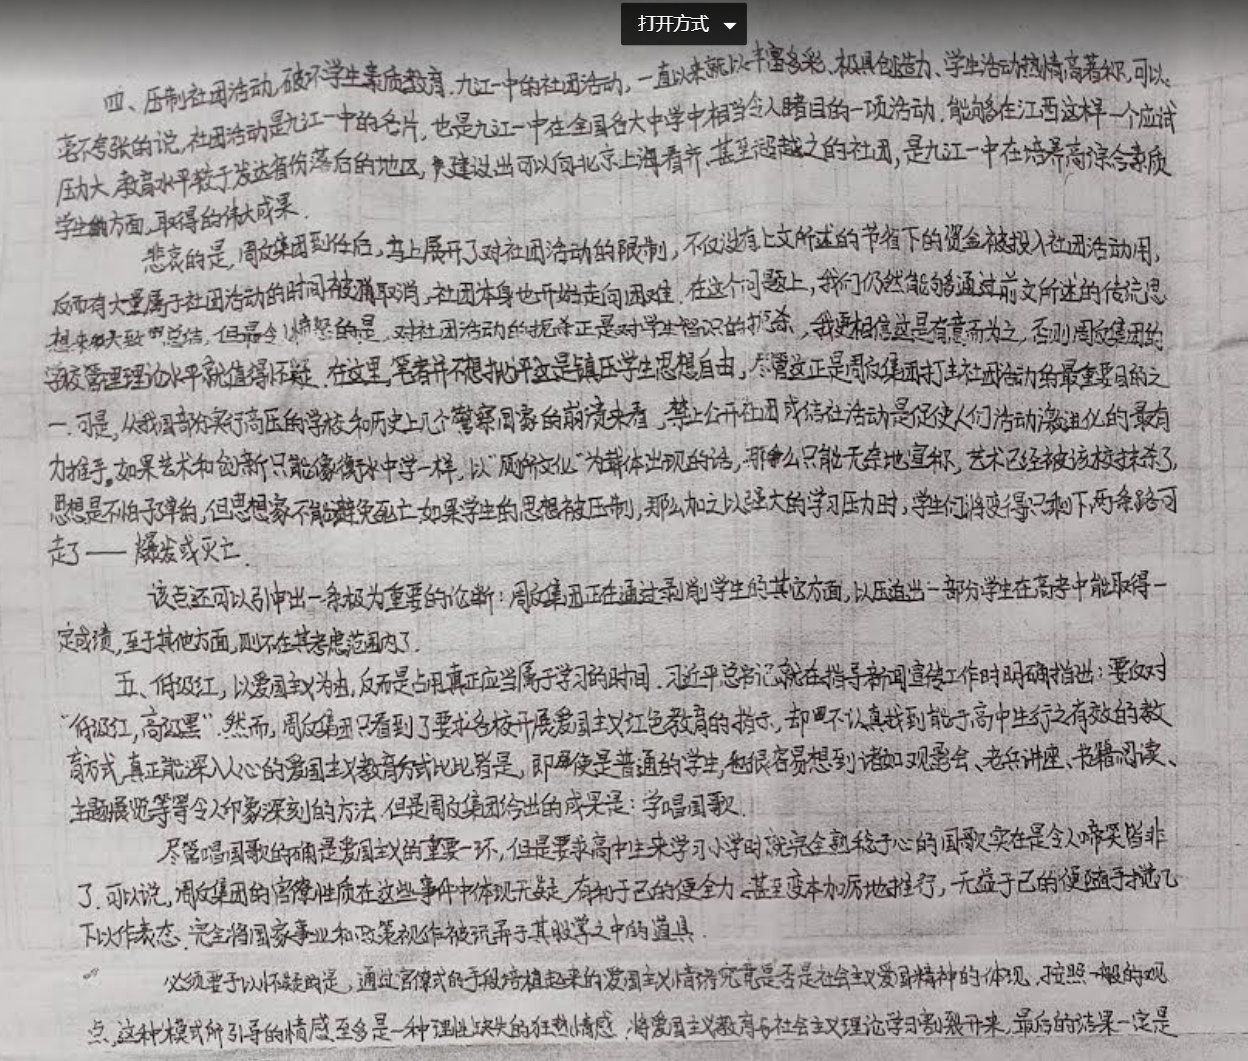 打开方式
四、压制社团活动,破坏学生素质教育.九江一中的社团活动,一直以来就以丰富多彩、极具创造力、学生活动热情高著称,可以
毫不夸张的说,社团活动是九江一中的名片,也是九江一中在全国各大中学中相当令人瞩目的一项活动.能够在江西这样一个应试
压力大、教育水平较于发达省份落后的地区,建设出可以向北京上海看齐、甚至超越之的社团,是九江一中在培养高综合素质
学生方面,取得的伟大成果.
悲哀的是,周政集团到任后,马上展开了对社团活动的限制,不仅没有上文所述的节省下的资金被投入社团活动用,
反而有大量属于社团活动的时间被取消,社团本身也开始走向困难.在这个问题上,我们仍然能够通过前文所述的传统思
想来大致总结,但最令人愤怒的是,对社团活动的扼杀正是对学生智识的扼杀,我更相信这是有意而为之,否则周政集团的
学校管理理论水平就值得怀疑.在这里,笔者并不想批评这是镇压学生思想自由,尽管这正是周政集团打压社团活动的最重要目的之
一.可是,从我国部分实行高压的学校和历史上几个警察国家的前渍来看,禁止公开社团或结社活动是促使人们活动激进化的最有
力推手。如果艺术和创新只能像衡水中学一样,以“厕所文化”为载体出现的话,那么只能无奈地宣称,艺术已经被该校抹杀了,
思想是不怕子弹的,但思想家不能避免死亡.如果学生的思想被压制,那么加之以强大的学习压力时,学生们将变得只剩下两条路可
走了——爆发或灭亡.
该点还可以引申出一条极为重要的论断:周政集团正在通过剥削学生的其它方面,以压迫出一部分学生在高考中能取得一
定成绩,至于其他方面,则不在其考虑范围内了.
五、低级红,以爱国主义为由,反而是占用真正应当属于学习的时间.习近平总书记就在指导新闻宣传工作时明确指出:要反对
“低级红,高级黑”.然而,周政集团只看到了要求各校开展爱国主义红色教育的指示,却不认真找到能于高中生行之有效的教
育方式,真正能深入人心的爱国主义教育方式比比皆是,即便使是普通的学生,也很容易想到诸如观影会、老兵讲座、书籍阅读、
主题展览等等令人印象深刻的方法.但是周政集团给出的成果是:学唱国歌.
尽管唱国歌的确是爱国主义的重要一环,但是要求高中生来学习小学时就完全熟稔于心的国歌实在是令人啼笑皆非
了.可以说,周政集团的官僚性质在这些事件中体现无疑.有利于己的便全力、甚至变本加厉地推行,无益于己的便随手搅几
下以作表态.完全将国家事业和政策视作被玩弄于其股掌之中的道具.
必须要予以怀疑的是,通过官僚式的手段培植起来的爱国主义情绪究竟是否是社会主义爱国精神的体现,按照一般的观
点,这种模式所引导的情感至多是一种理性缺失的狂热情感.将爱国主义教育与社会主义理论学习割裂开来,最后的结果一定是